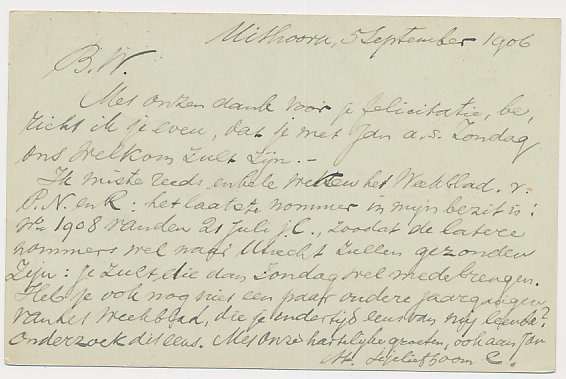 Uithoorn, 5 September 1906
B.W.
Met onzen dank voor je felicitatie, be,
richt ik je even, dat je met Jan a.s. Zondag
ons welkom zult zijn. -
Ik miste reeds enkele weken het Weekblad. v.
P.N. en R: het laatste nommer in mijn bezit is:
No 1908 van den 21 juli j.l., zoodat de latere
nommers wel naar Utrecht zullen gezonden
zijn: je zult die dan Zondag wel medebrengen.
Heb je ook nog niet een paar oudere jaargangen
van het Weekblad, die je indertijd eens van mij leende?
Onderzoek dit eens. Met onze hartelijke groeten, ook aan Jan
je liefh. oom C.